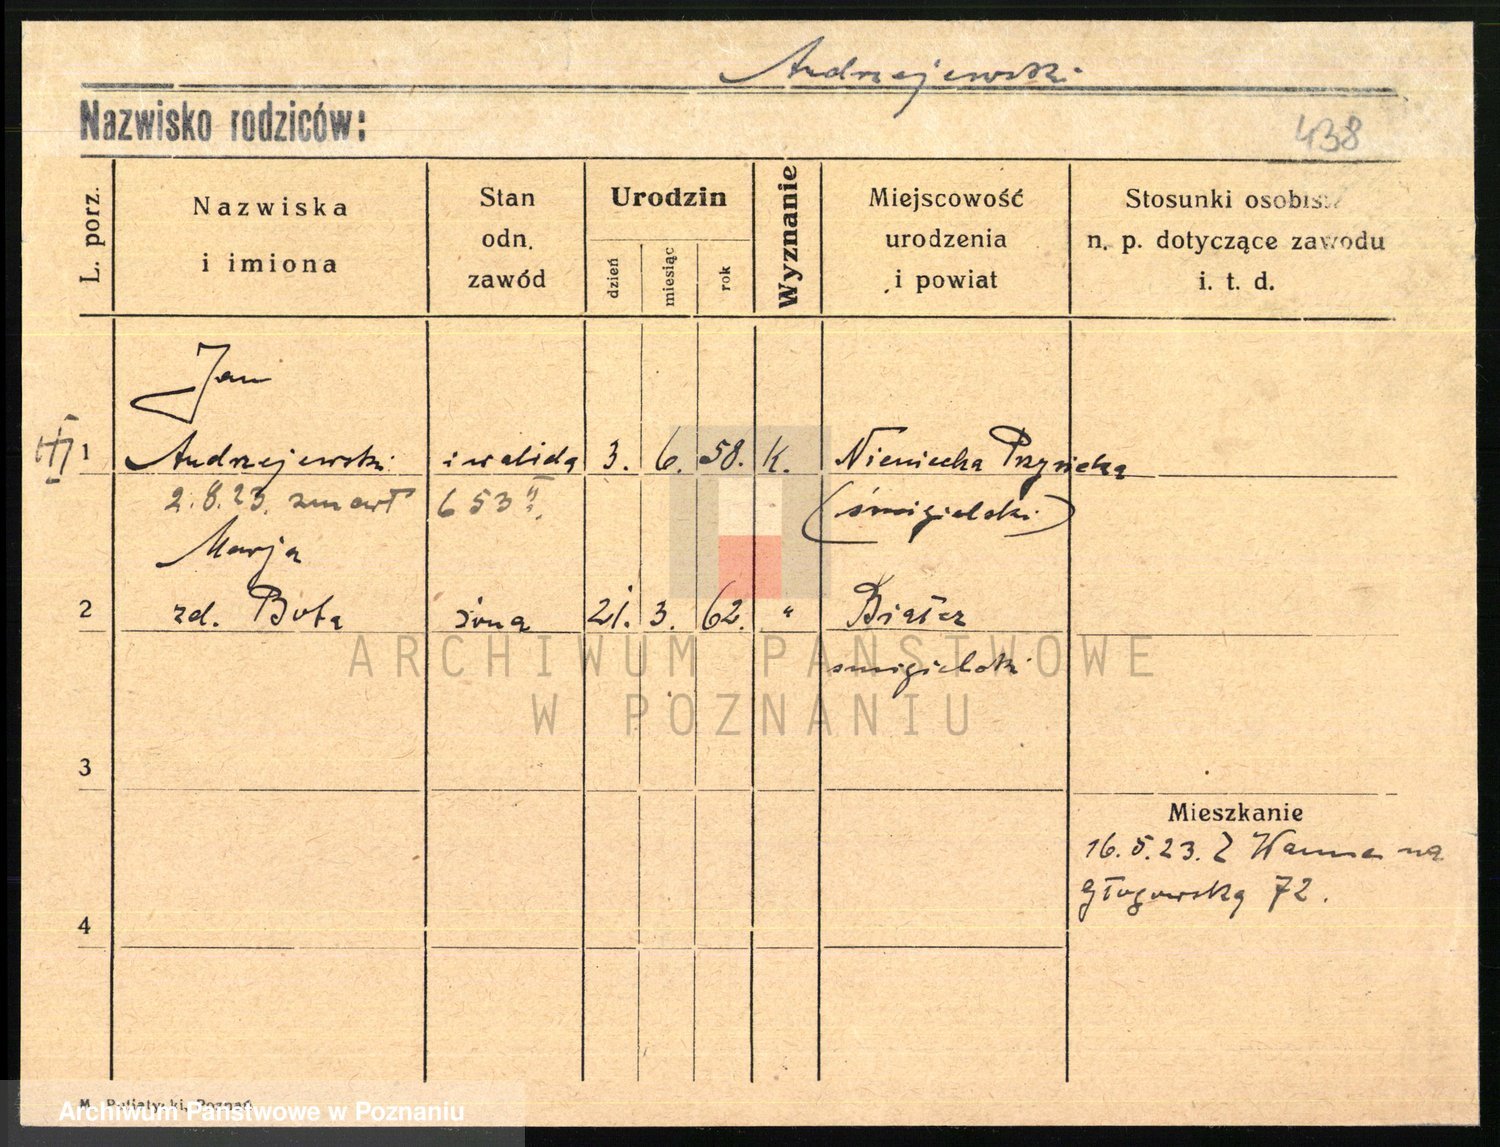 Andrzejewski
Nazwisko rodziców:
438
L. porz.
Nazwiska
i imiona
Stan
odn.
zawód
Urodzin
dzień
miesiąc
rok
Wyznanie
Miejscowość
urodzenia
i powiat
Stosunki osobis
n. p. dotyczące zawodu
i. t. d.
Jan
1 Andrzejewski iwalida 3. 6. 58. K. Niemiecka Przysieka
2.8.23. zmarł 653 II. (śmigielski)
Marja
2 zd. Bota żona 21. 3. 62. " Białcz
śmigielski
ARCHIWUM PAŃSTWOWE
W POZNANIU
3
Mieszkanie
16.5.23. Z na
Głogowską 72.
4
M. Putiatycki, Poznań
Archiwum Państwowe w Poznaniu